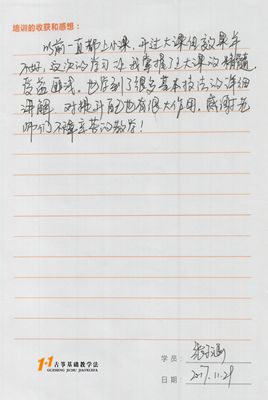 培训的收获和感想：
以前一直都上小课，开过大课但效果并
不好，这次的学习让我掌握了上大课的精髓
受益匪浅。也学到了很多基本技法的详细
讲解，对提升自己也有很大作用。感谢老
师们不辞辛苦的教学！
1+1古筝基础教学法
GUZHENG JICHU JIAOXUEFA
学员：
日期：2017.11.29